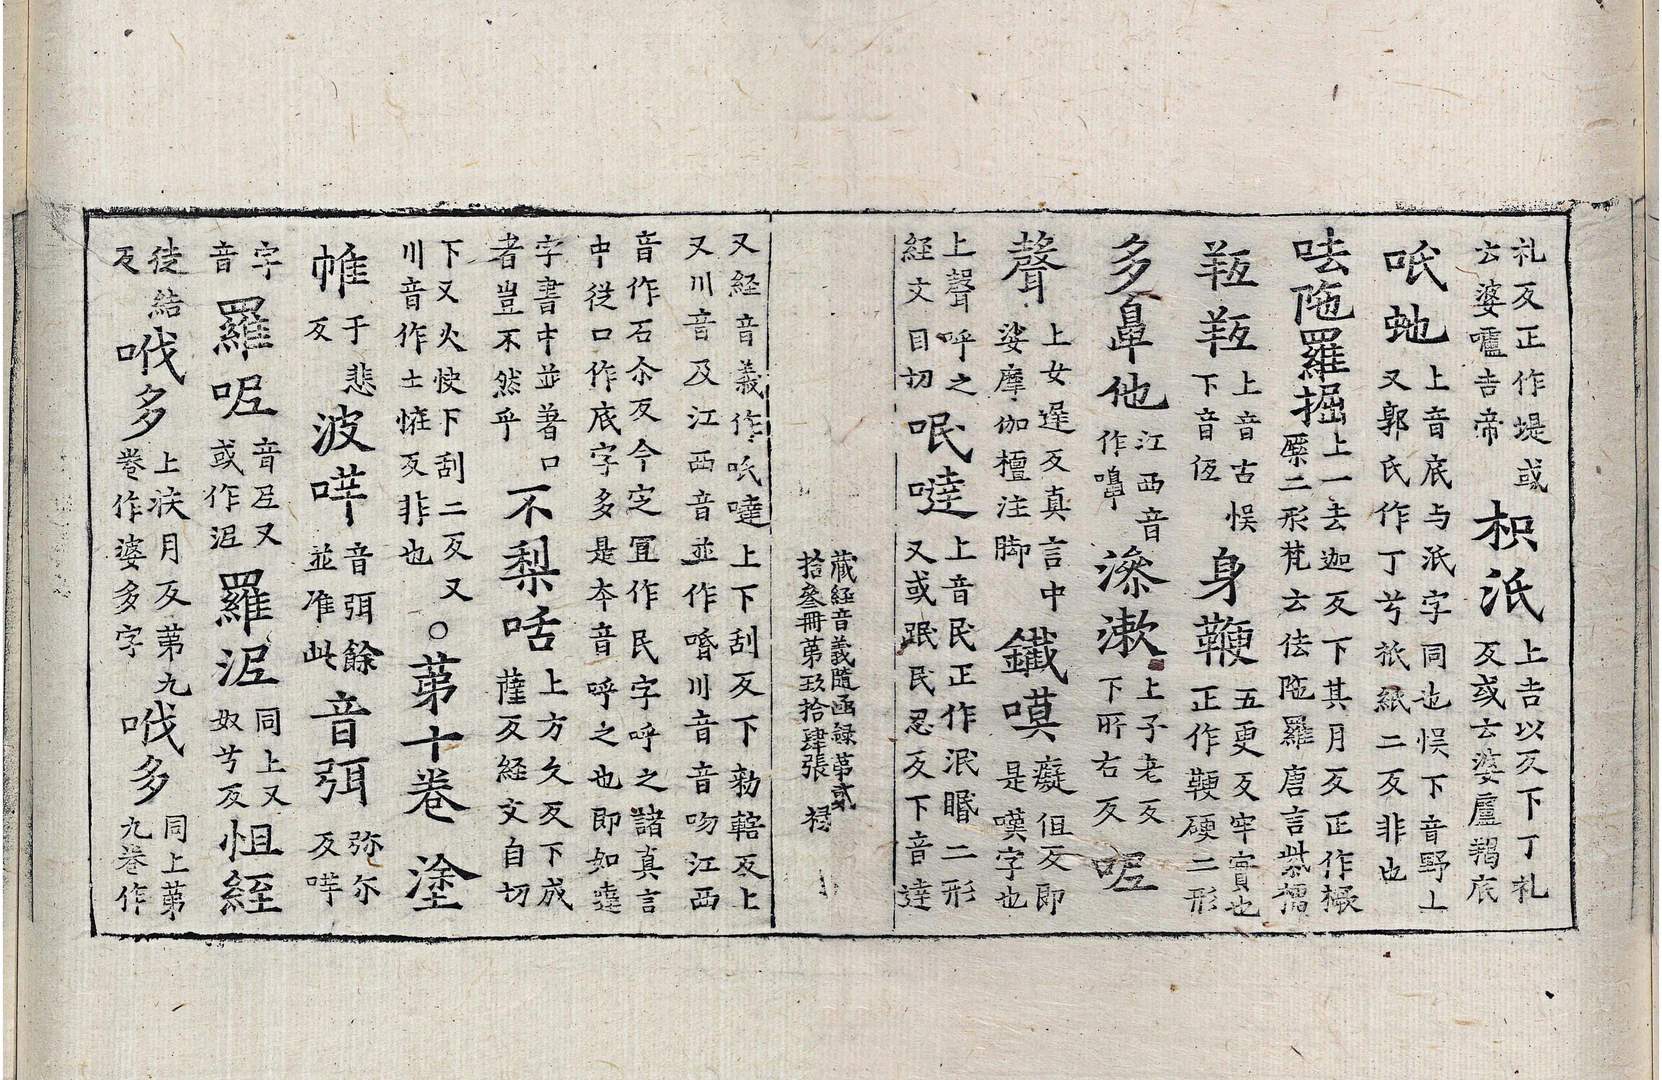 札反正作堤或
云婆嚧吉帝
枳泜
上吉以反下丁札
反或云婆盧羯底
呧虵
上音底与泜字同也悮下音野上
又郭氏作丁兮祇紙二反非也
呿陁羅掘
上一去迦反下其月反正作橛
㯕二形梵云佉陁羅唐言紫檀
羫羫
上音古悮
下音恆
身鞭
五更反牢實也
正作鞕硬二形
多鼻他
江西音
作嚊
滲漱
上子老反
下所右反
呢
聲
上女遲反真言中
娑摩伽檀注脚
鐵嘆
癡但反即
是嘆字也
上聲呼之
経文目切
呡噠
上音民正作泯㬆二形
又或䟨民忍反下音達
藏経音義隨函録第貳
拾叄冊第玖拾肆張 祿
又経音義作呧噠上下刮反下勑轄反上
又川音及江西音並作㖧川音音吻江西
音作石尒反今定冝作民字呼之諸真言
中從口作底字多是夲音呼之也即如達
字書中並著口
者豈不然乎
不梨咶
上方久反下成
薩反経文自切
下又火快下刮二反又
川音作士恠反非也
○第十卷
塗
帷
于悲
反
波哶
音弭餘
並准此
音弭
弥尒
反哶
字
音
羅呢
音𡰱又
或作泥
羅泥
同上又
奴兮反
怛経
徒結
反
㗚多
上㳀月反第九
卷作婆多字
㗚多
同上第
九卷作